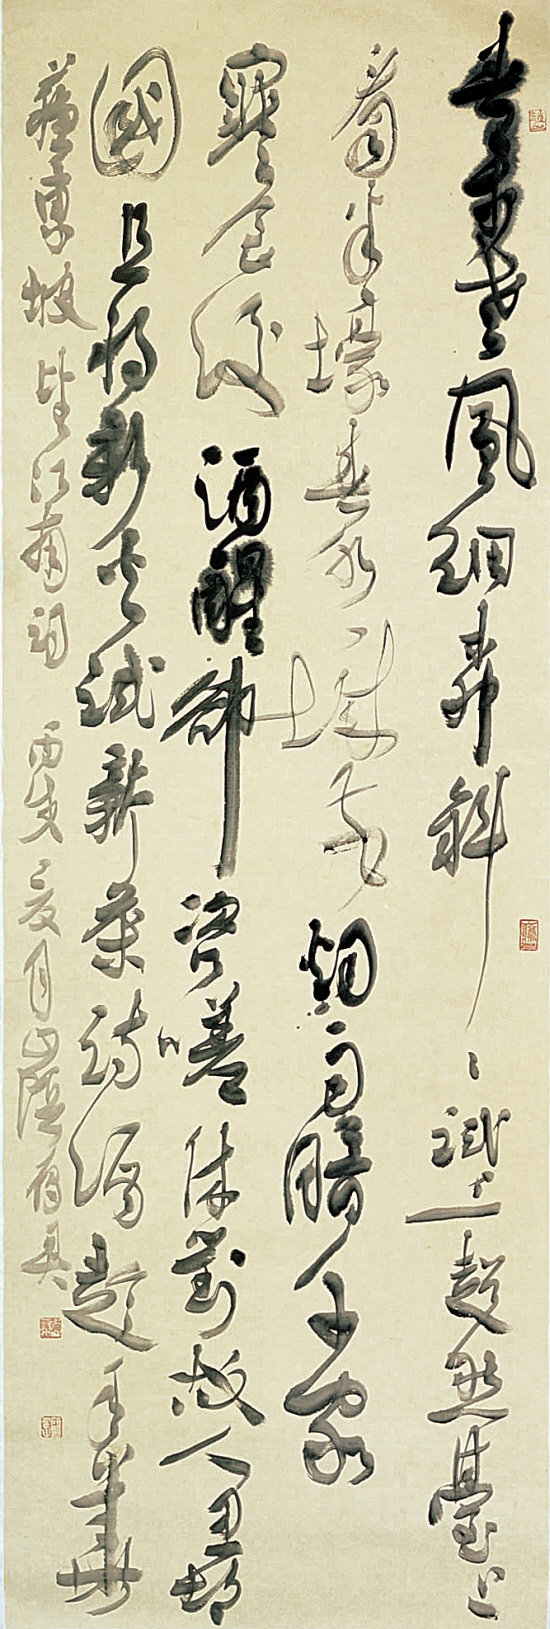 春未老風細柳斜〻試上超然臺上
看半壕春水一城花烟雨暗千家
寒食後酒醒卻咨嗟休對故人思故
國且將新火試新茶詩酒趁年華
蘇東坡望江南詞 丙戌夏月山陰